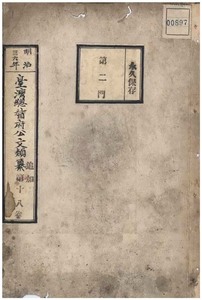 00897
永久保存
第二門
明治
三十六年
臺灣總督府公文類纂
追加
第十八卷